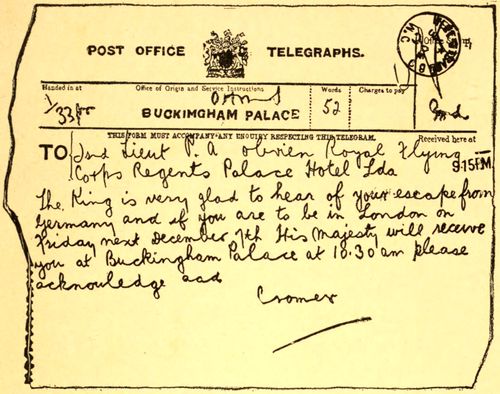 POST OFFICE TELEGRAPHS.
Handed in at Office of Origin and Service Instructions Words Charges to pay
O H M S
1/33 BUCKIMGHAM PALACE 52
THIS FORM MUST ACCOMPANY ANY ENQUIRY RESPECTING THIS TELEGRAM. Received here at
TO 2nd Lieut P. A Obrien Royal Flying 9.15 PM
Corps Regents Palace Hotel Lda
The King is very glad to hear of your escape from
Germany and if you are to be in London on
Friday next December 7th His Majesty will receive
you at Buckingham Palace at 10.30 am please
acknowledge aad
Cromer